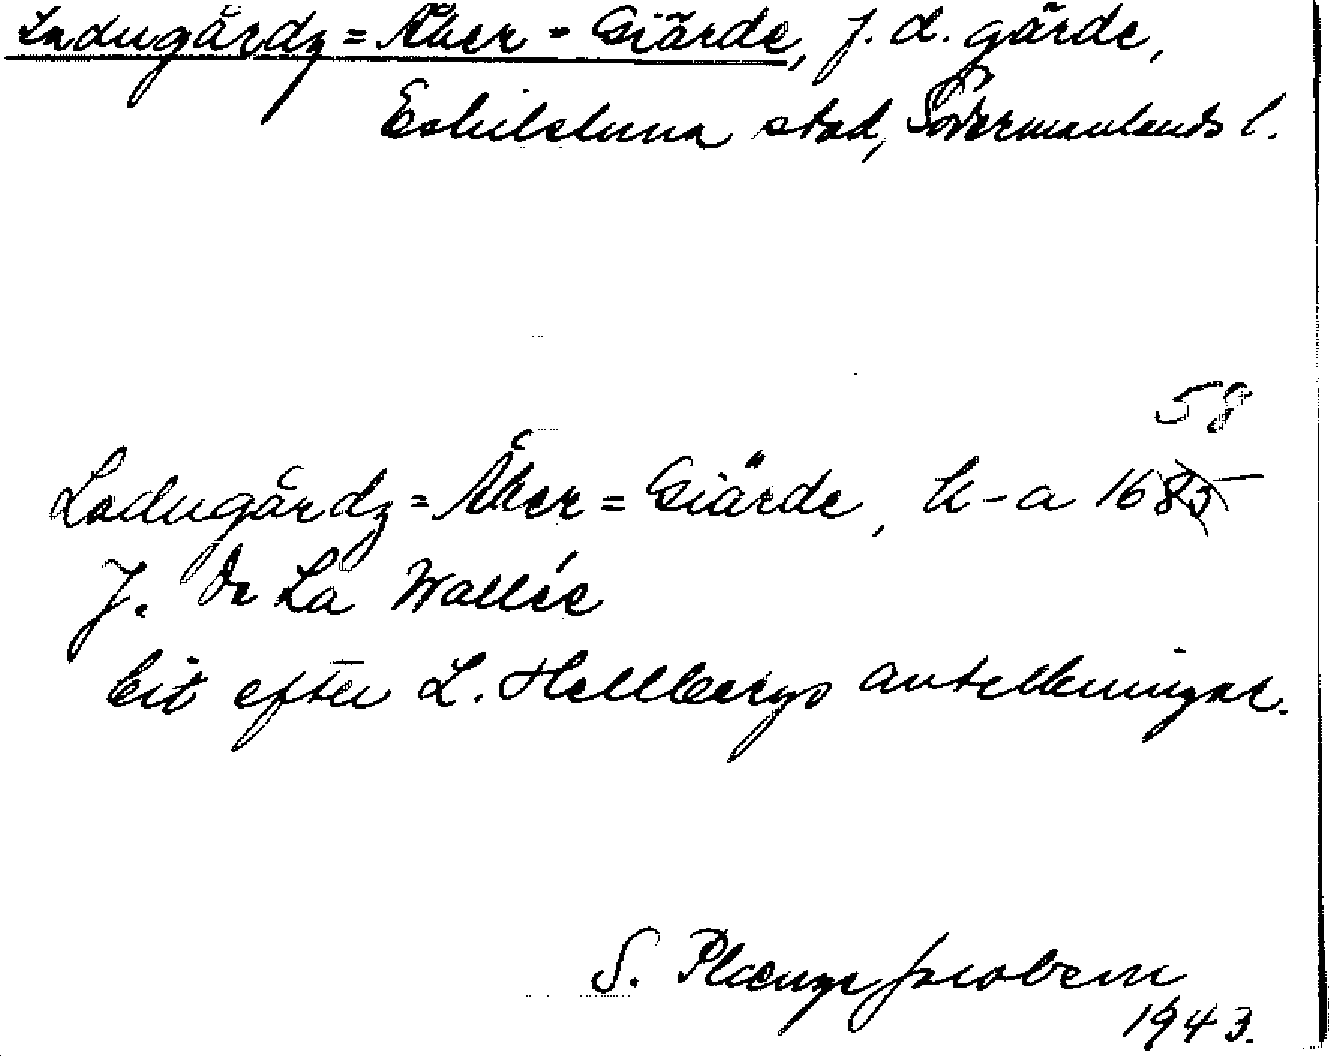 Ladugårdz=Åker=Giärde, f. d. gärde,
Eskilstuna stad, Södermanlands l.
58
Ladugårdz=Åker=Giärde, k-a 1685
J. De La Wallée
Cit efter L. Hellbergs anteckningar.
S. Jacobson
1943.